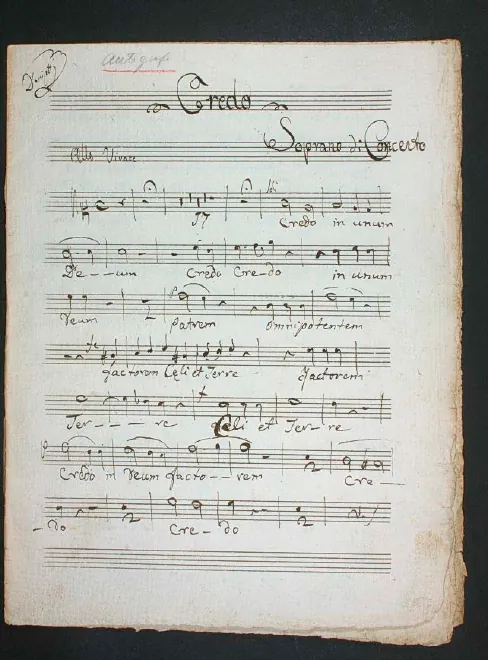 Credo
Soprano di Concerto
Allo Vivace
17 Credo in unum
De--um Credo Cre-do in unum
Deum patrem omnipotentem
factorem Celi et Terre factorem
Ter---re Celi et Ter-re
Credo in Deum facto--rem Cre-
2 2
-do Cre-do